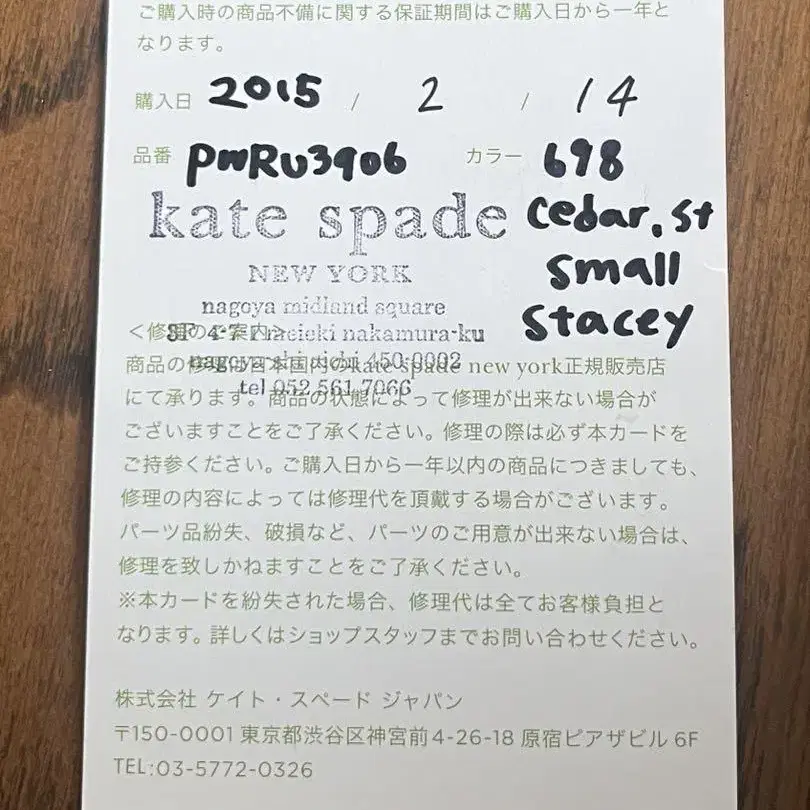 ご購入時の商品不備に関する保証期間はご購入日から一年と
なります。
購入日 2015 / 2 / 14
品番 PWRU3906 カラー 698
kate spade cedar. st
NEW YORK small
nagoya midland square stacey
<修理のご案内>
meieki nakamura-ku
商品の修理は日本国内のkate spade new york正規販売店
450-0002
tel 052 561 7066
にて承ります。商品の状態によって修理が出来ない場合が
ございますことをご了承ください。修理の際は必ず本カードを
ご持参ください。ご購入日から一年以内の商品につきましても、
修理の内容によっては修理代を頂戴する場合がございます。
パーツ品紛失、破損など、パーツのご用意が出来ない場合は、
修理を致しかねますことをご了承ください。
※本カードを紛失された場合、修理代は全てお客様負担と
なります。詳しくはショップスタッフまでお問い合わせください。
株式会社 ケイト・スペード ジャパン
〒150-0001 東京都渋谷区神宮前4-26-18 原宿ピアザビル 6F
TEL:03-5772-0326